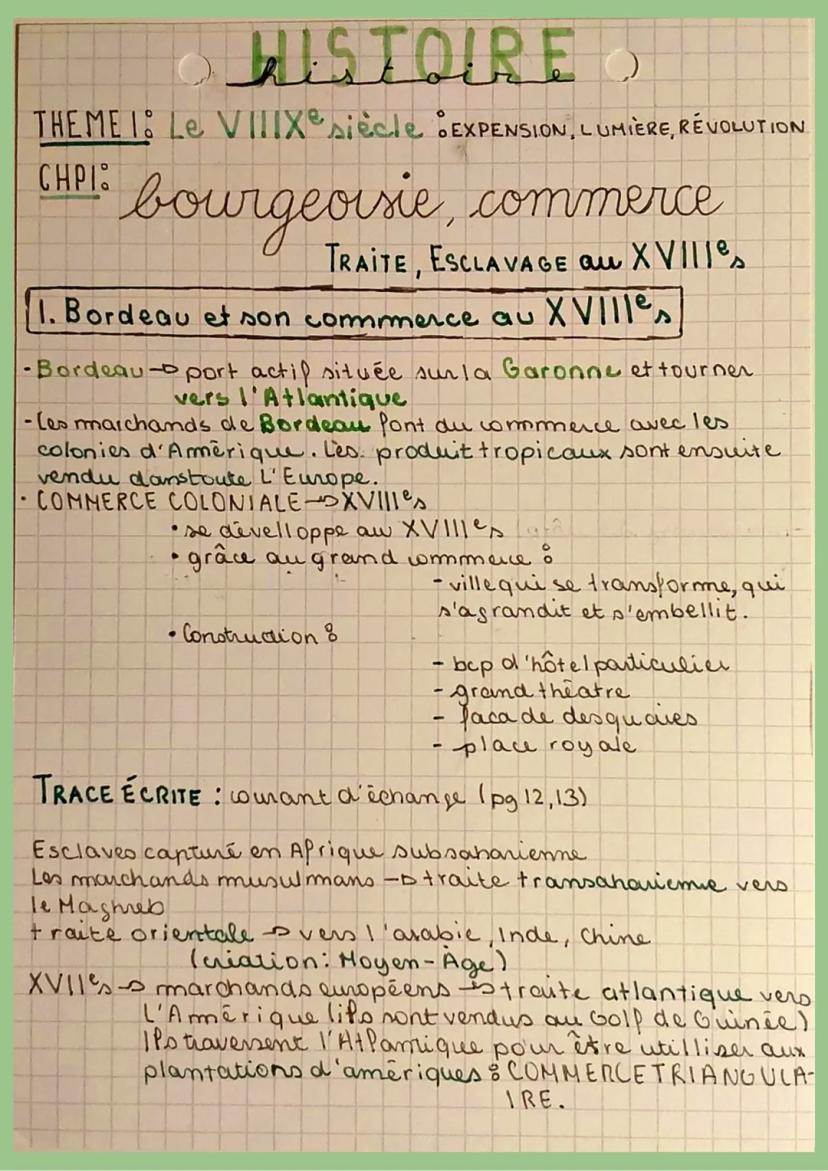 HISTOIRE
histoire
THEME 1: Le VIIIXe siècle : EXPENSION, LUMIÈRE, RÉVOLUTION
CHP1: bourgeoisie, commerce
TRAITE, ESCLAVAGE au XVIIIes
1. Bordeau et son commmerce au XVIIIes
- Bordeau → port actif située sur la Garonne et tourner
vers l'Atlantique
- les marchands de Bordeau font du commerce avec les
colonies d'Amérique. Les produit tropicaux sont ensuite
vendu dans toute L'Europe.
• COMMERCE COLONIALE → XVIIIes
• se dévelloppe au XVIIIes
• grâce au grand commerce :
- ville qui se transforme, qui
s'agrandit et s'embellit.
• Construction :
- bcp d'hôtel particulier
- grand théatre
- facade des quaies
- place royale
TRACE ÉCRITE : courant d'échange (pg 12,13)
Esclaves capturé en Afrique subsaharienne
Les marchands musulmans → traite transaharienne vers
le Maghreb
traite orientale → vers l'arabie, Inde, Chine
(création: Moyen-Âge)
XVIIes → marchands européens → traite atlantique vers
L'Amérique (ils sont vendus au Golf de Guinée)
Ils traversent l'Atlantique pour être utilliser aux
plantations d'amériques : COMMERCE TRIANGULA-
IRE.